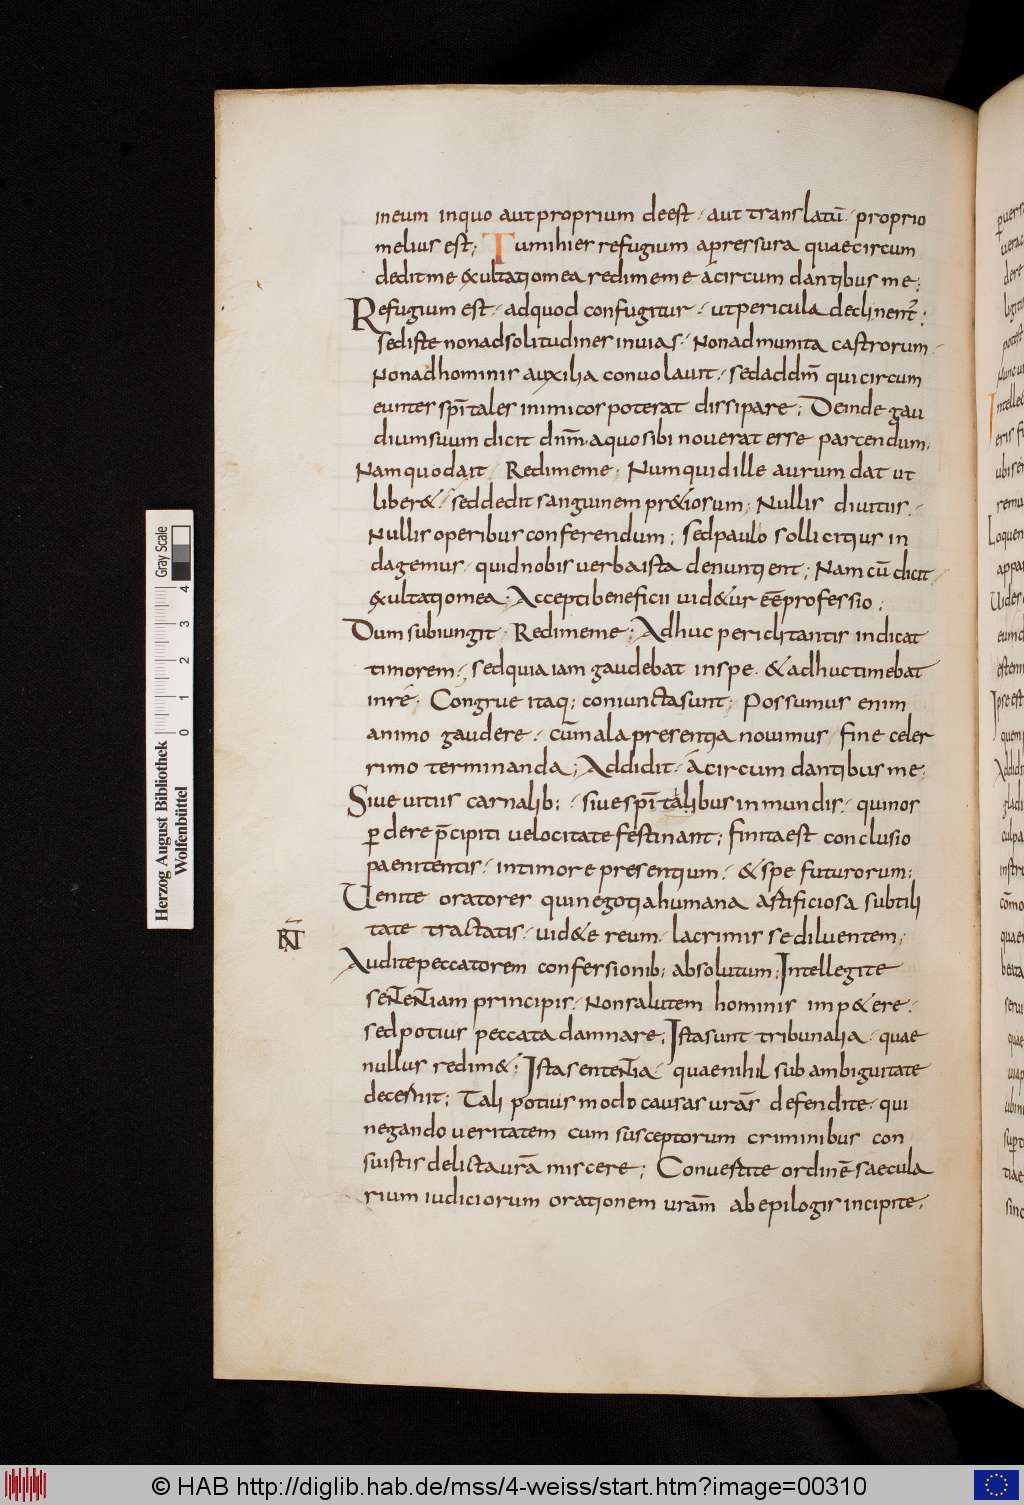 in eum in quo aut proprium deest · aut translatū · proprio
melius est; Tu mihi es refugium a pressura quae circum
dedit me & exultatio mea redime me a circumdantibus me;
Refugium est · ad quod confugitur · ut pericula declinent̉;
sed iste non ad solitudines inuias · Non ad munita castrorum ·
Non ad hominis auxilia conuolauit · sed ad dm̄ qui circum
euntes spītales inimicos poterat dissipare; Deinde gau
dium suum dicit dnm̄ a quo sibi nouerat esse parcendum;
Nam quod ait · Redime me; Numquid ille aurum dat ut
liber& · sed dedit sanguinem pr&iosum; Nullis diuitiis ·
Nullis operibus conferendum; sed paulo sollicitius in
dagemus · quid nobis uerba ista denuntient; Nam cū dicit ·
exultatio mea · Accepti beneficii uid&ur eē professio;
Dum subiungit · Redime me; Adhuc periclitantis indicat
timorem; sed quia iam gaudebat in spe · & adhuc timebat
in rē · Congrue itaq; coniuncta sunt; Possumus enim
animo gaudere · cūm ala presentia nouimus · fine celer
rimo terminanda; Addidit · a circumdantibus me;
Siue uitiis carnalib; · siue spītalibus inmundis · qui nos
ꝑdere p̄cipiti uelocitate festinant; finita est conclusio
paenitentis · in timore presentium · & spe futurorum;
Uenite oratores qui negotia humana astificiosa subtili
tate tractatis · uid&e reum · lacrimis se diluentem;
Audite peccatorem confessionib; absolutum; Intellegite
sententiam principis · Non salutem hominis imp&ere ·
sed potius peccata damnare; Ista sunt tribunalia · quae
nullus redim&; Ista sententia · quae nihil sub ambiguitate
decernit; Tali potius modo causas urās defendite · qui
negando ueritatem cum susceptorum criminibus con
suistis delicta urā miscere; Conuestite ordinē saecula
rium iudiciorum orationem urām ab epilogis incipite;
Herzog August Bibliothek
Wolfenbüttel
0 1 2 3 4
Gray Scale
© HAB http://diglib.hab.de/mss/4-weiss/start.htm?image=00310